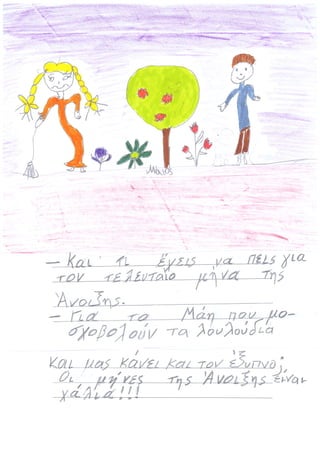 Μάιος
– Και τι έχεις να πεις για
τον τελευταίο μήνα της
Άνοιξης.
– Για το Μάη που μο-
σχοβολούν τα λουλούδια
Και μας κάνει και τον έξυπνο;
Οι μήνες της Άνοιξης είναι
χάλια!!!